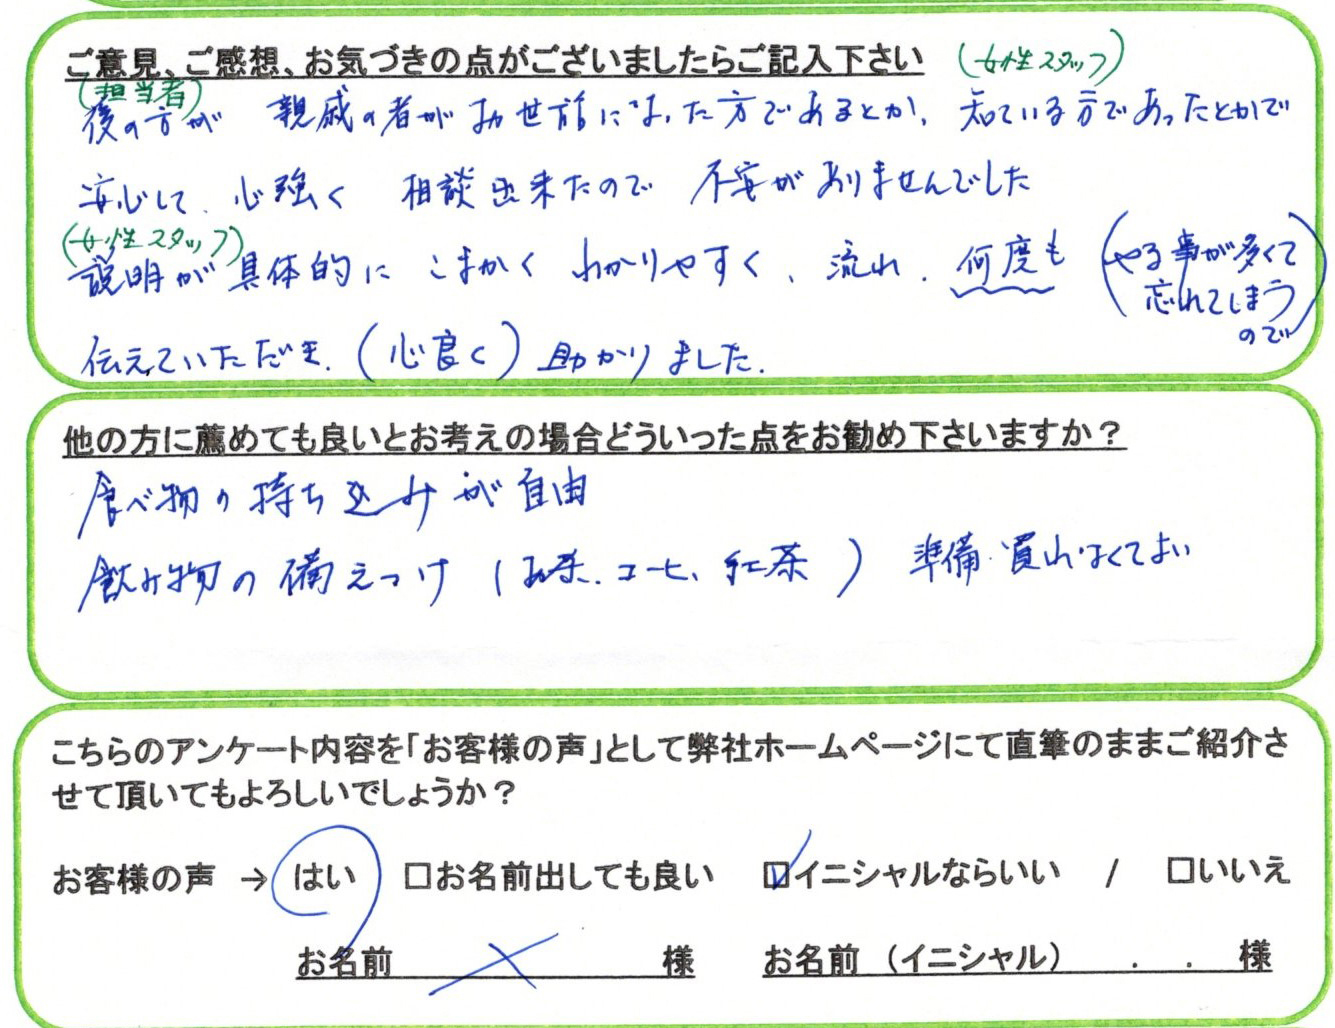 ご意見、ご感想、お気づきの点がございましたらご記入下さい (女性スタッフ)
(担当者)
後の方が 親戚の者がお世話になった方であるとか、知っている方であったとかで
安心して、心強く 相談出来たので 不安がありませんでした
(女性スタッフ)
説明が具体的に こまかく わかりやすく、流れ、何度も (やる事が多くて
忘れてしまう
ので)
伝えていただき、(心良く) 助かりました。
他の方に薦めても良いとお考えの場合どういった点をお勧め下さいますか?
食べ物の持ち込みが自由
飲み物の備えつけ (お茶、コーヒ、紅茶) 準備・買わなくてよい
こちらのアンケート内容を「お客様の声」として弊社ホームページにて直筆のままご紹介さ
せて頂いてもよろしいでしょうか?
お客様の声 → はい □お名前出しても良い ☑イニシャルならいい / □いいえ
お名前 × 様 お名前 (イニシャル) . . 様